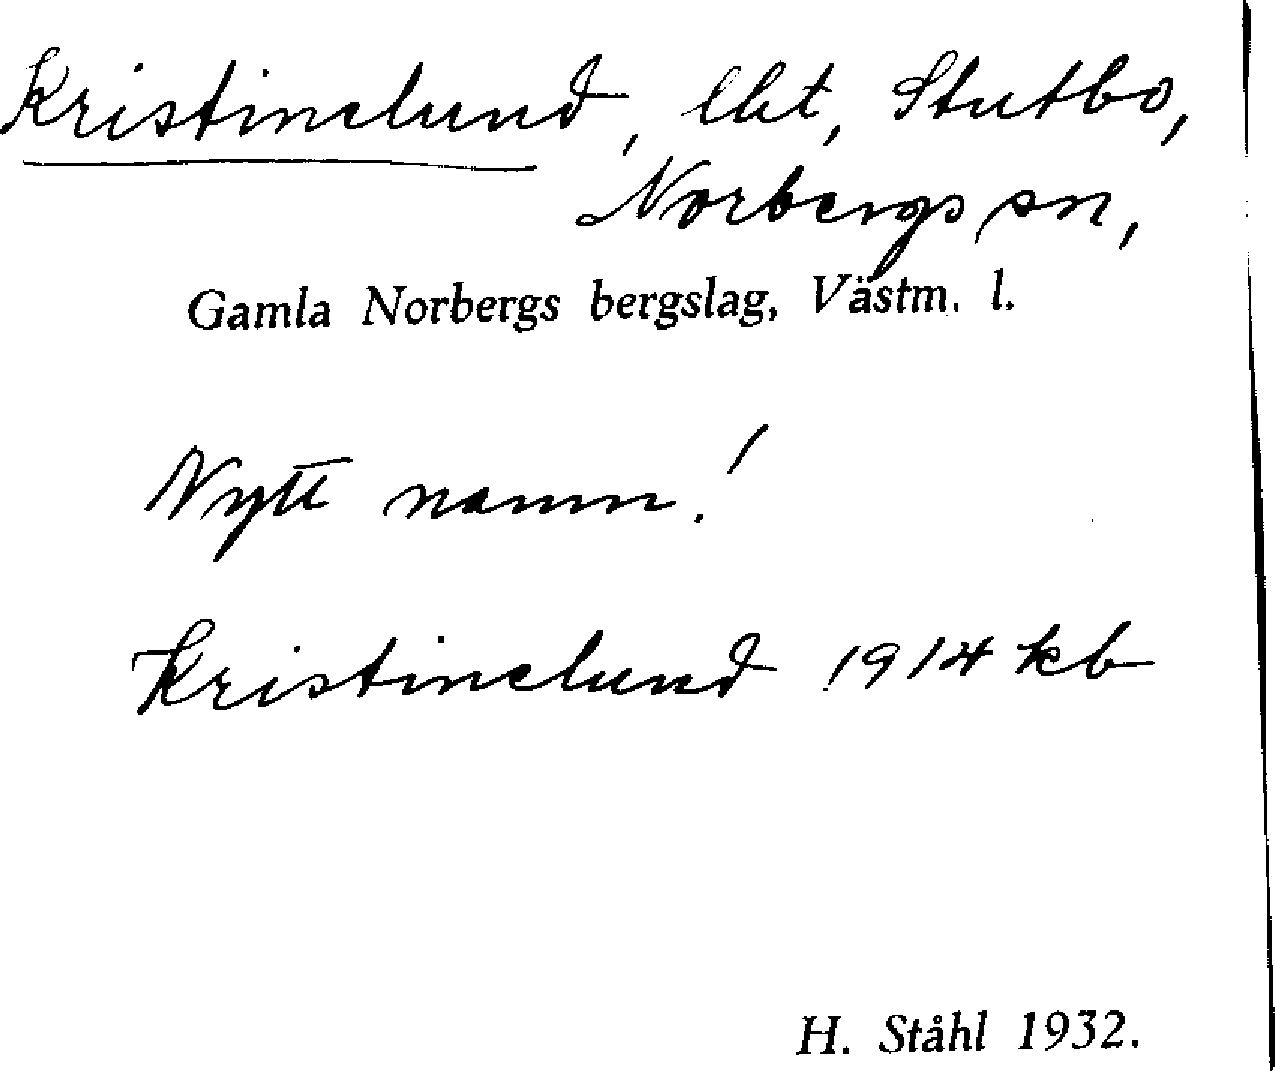 Kristinelund, lht, Stutbo,
Norbergs sn,
Gamla Norbergs bergslag, Västm. l.
Nytt namn!
Kristinelund 1914 kb
H. Ståhl 1932.